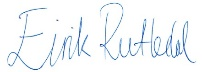 Eirik Rutledal